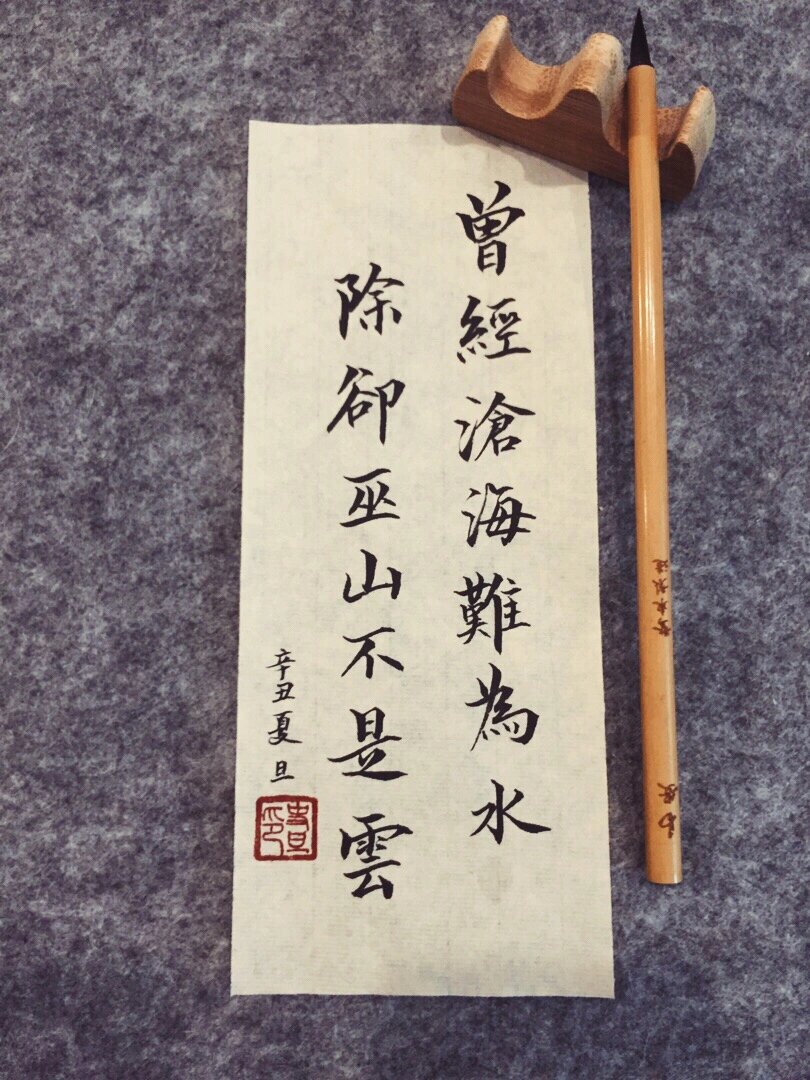 曾經滄海難為水
除卻巫山不是雲
辛丑夏 旦